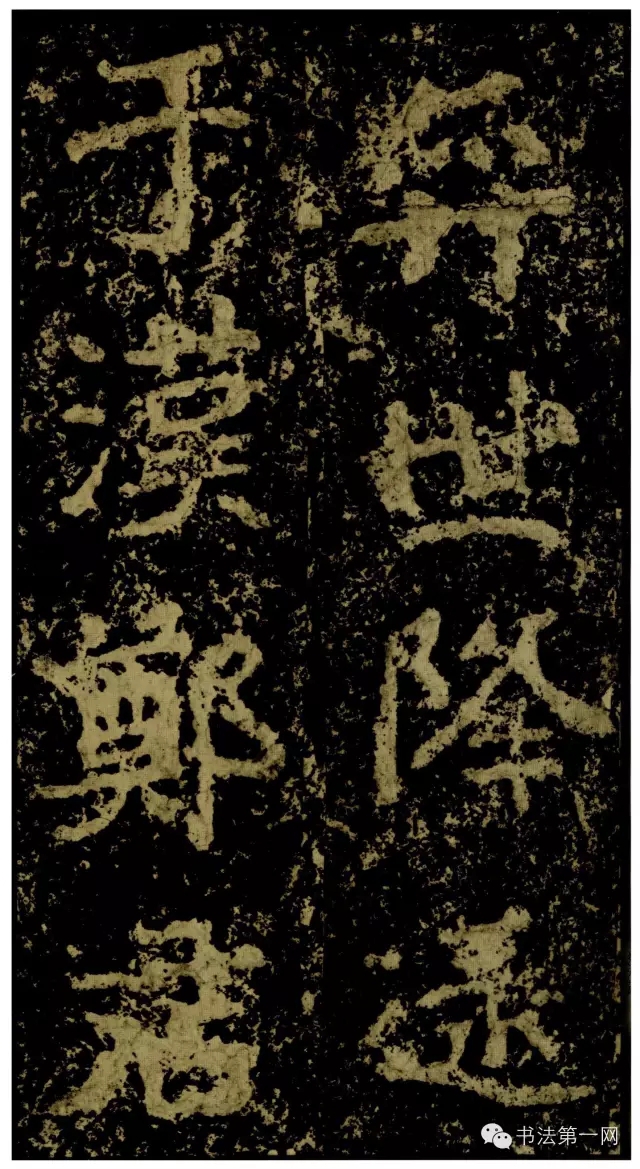 弈世降逮
于漢鄭君
书法第一网